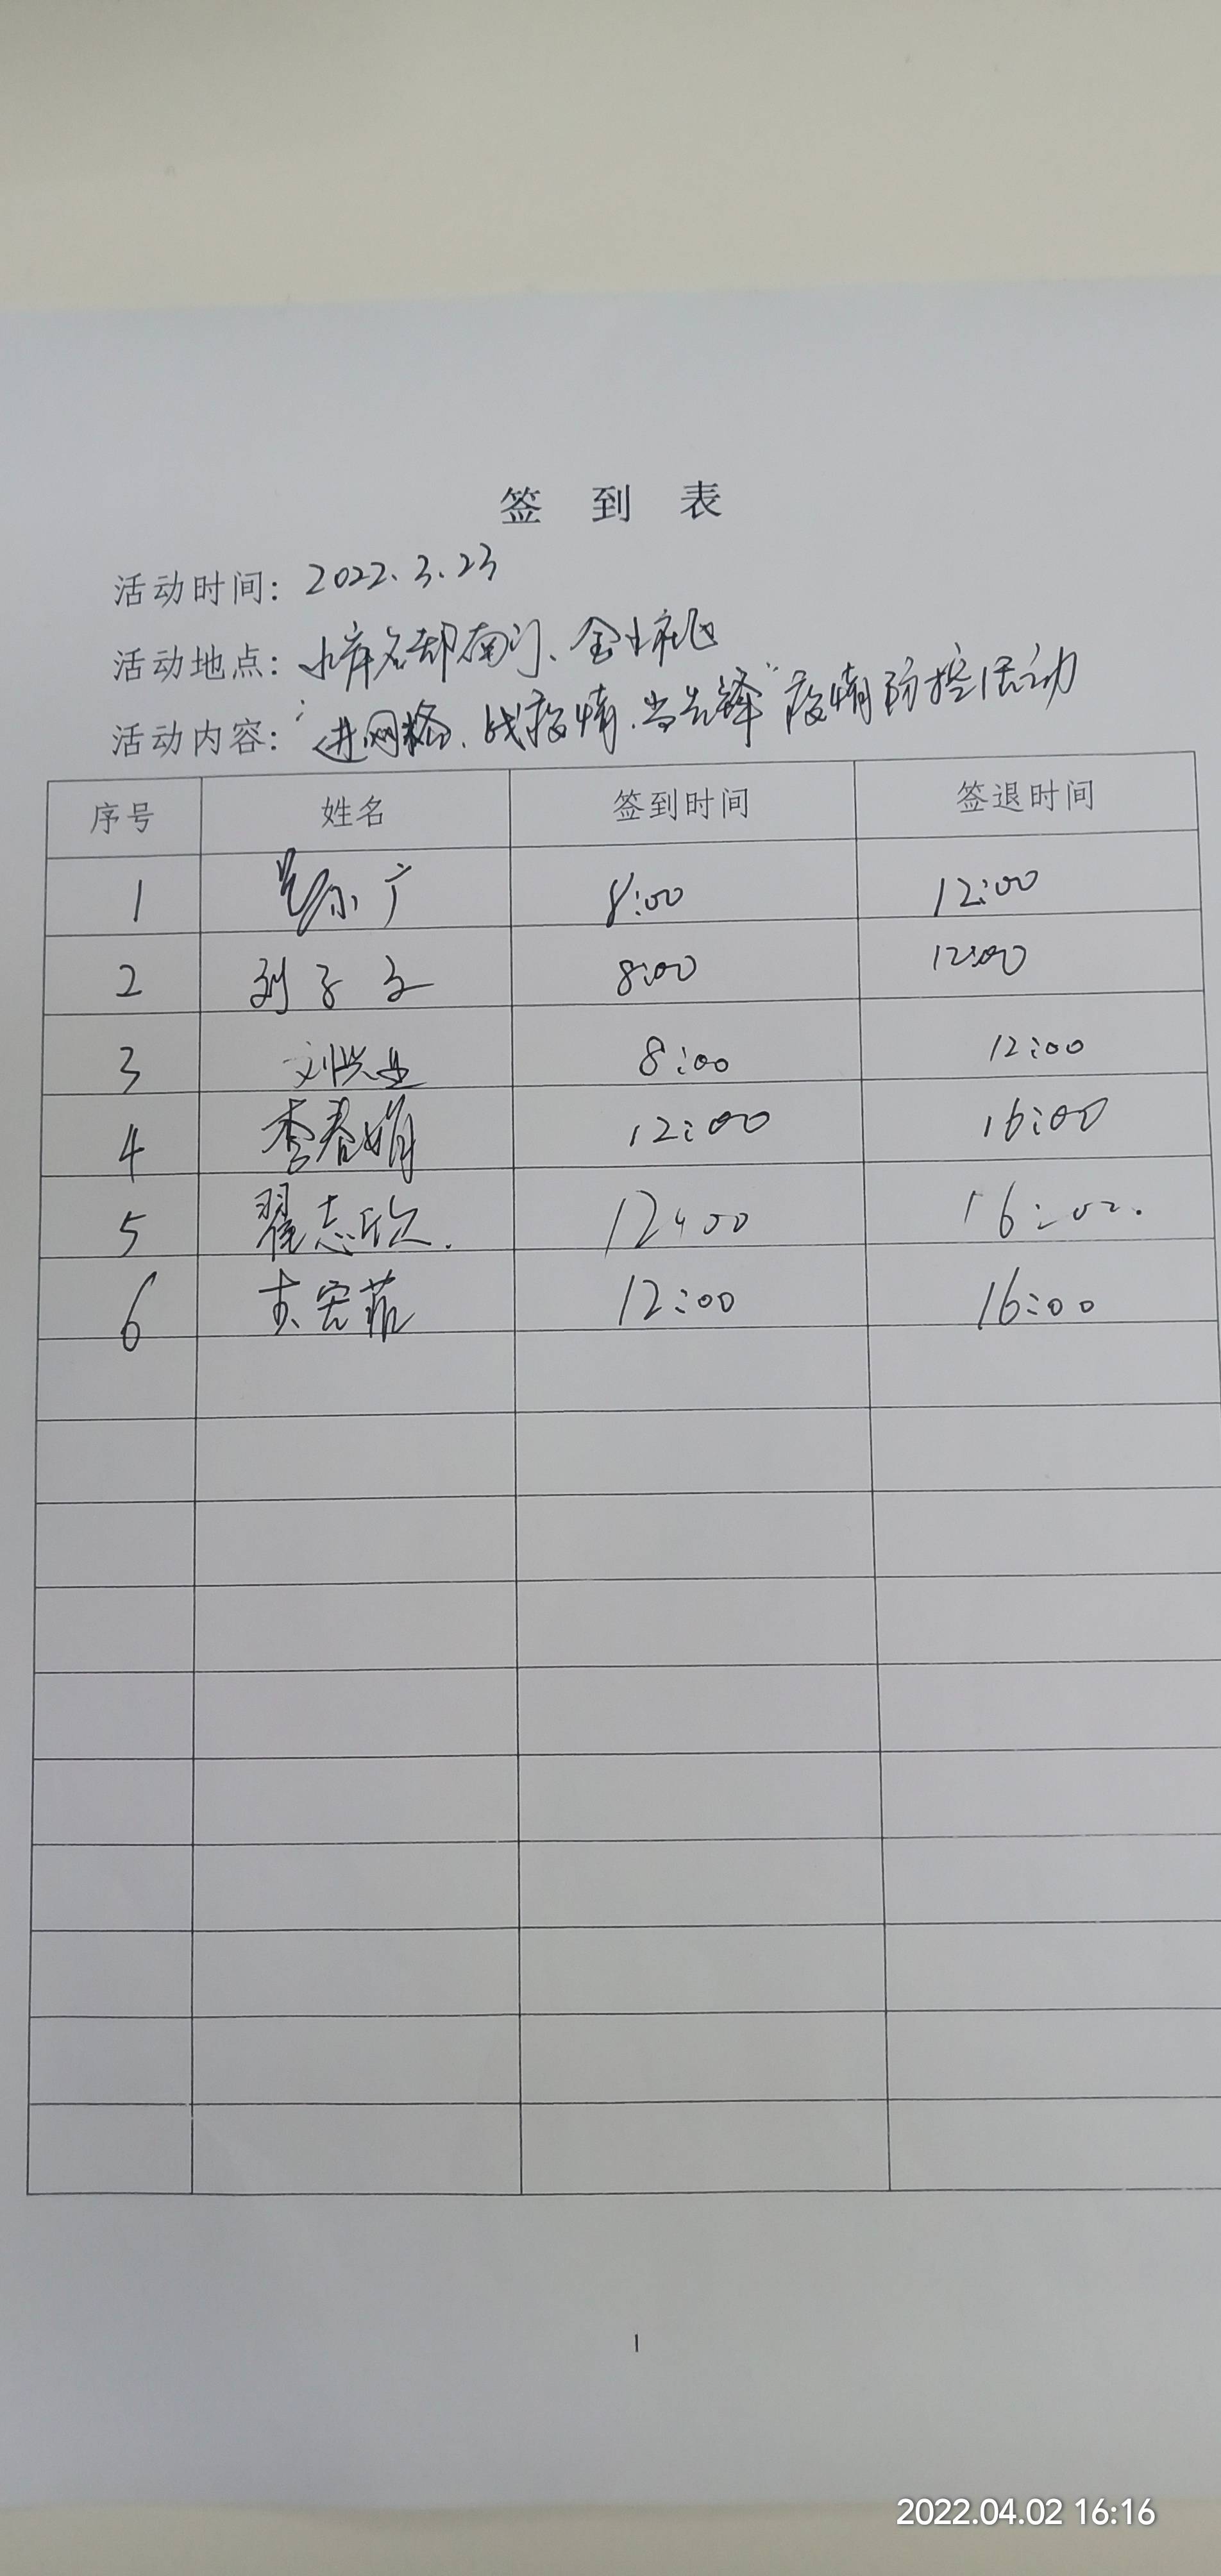 签 到 表
活动时间: 2022.3.23
活动地点: 水岸名都南门、金土社区
活动内容: "进网格、战疫情、当先锋"疫情防控活动
序号 姓名 签到时间 签退时间
1 广 8:00 12:00
2 刘子文 8:00 12:00
3 刘 8:00 12:00
4 李春娟 12:00 16:00
5 翟志欣. 12:00 16:00.
6 12:00 16:00
1
2022.04.02 16:16